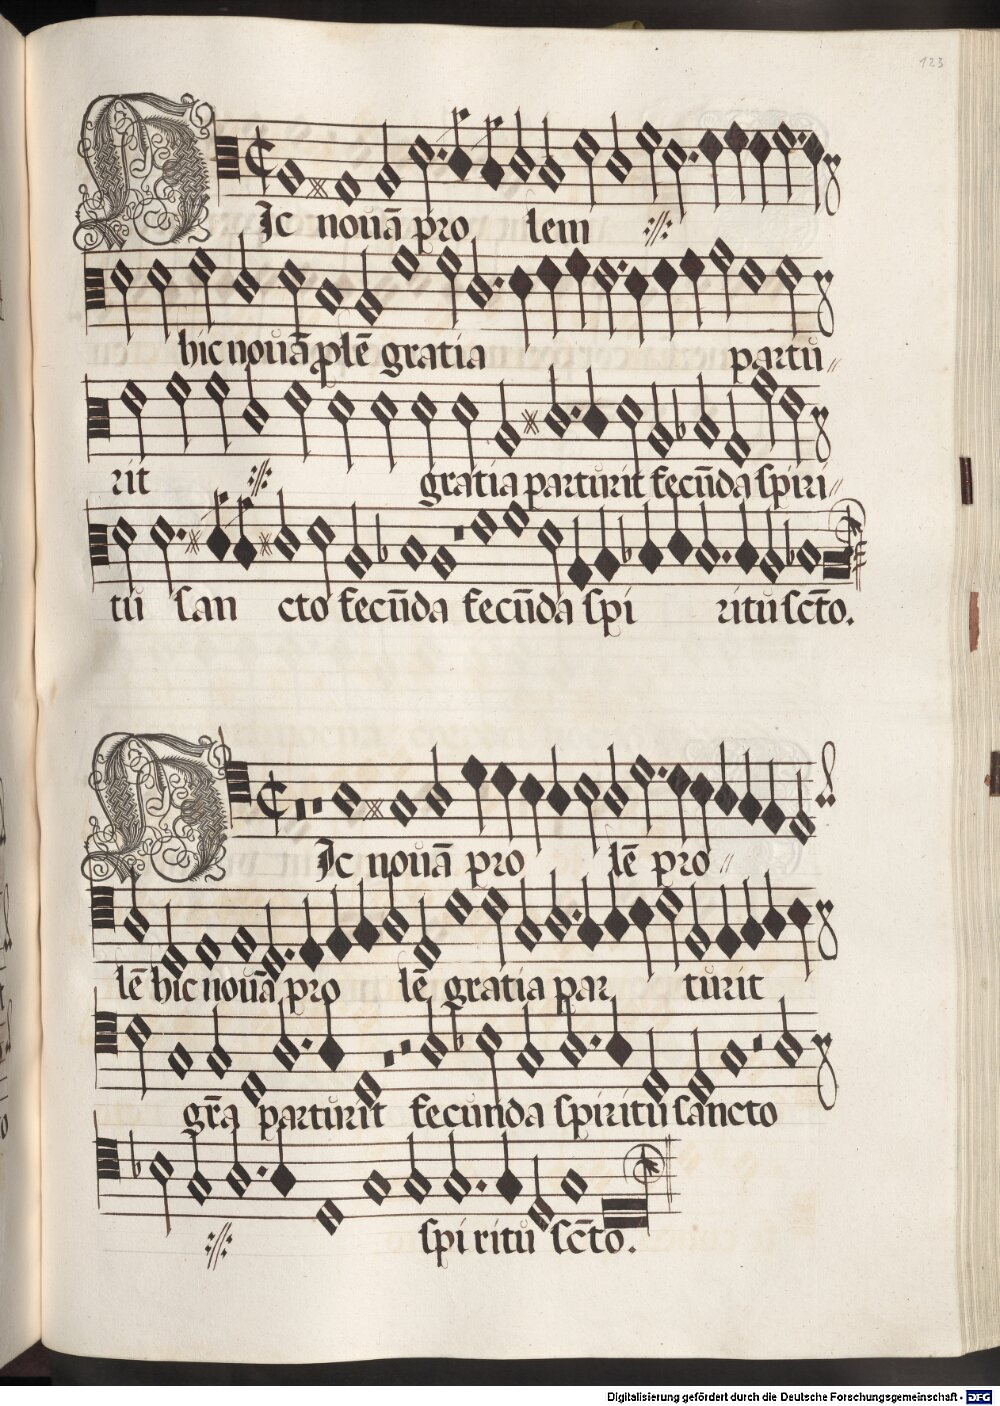 123
HIc nouā pro lem
hic nouā ꝓlē gratia partu
rit gratia parturit fecūda spiri
tu san cto fecūda fecūda spi ritu scto.
HIc nouā pro lē pro
lē hic nouā pro lē gratia par turit
gr̄a parturit fecunda spiritu sancto
spi ritu scto.
Digitalisierung gefördert durch die Deutsche Forschungsgemeinschaft - DFG